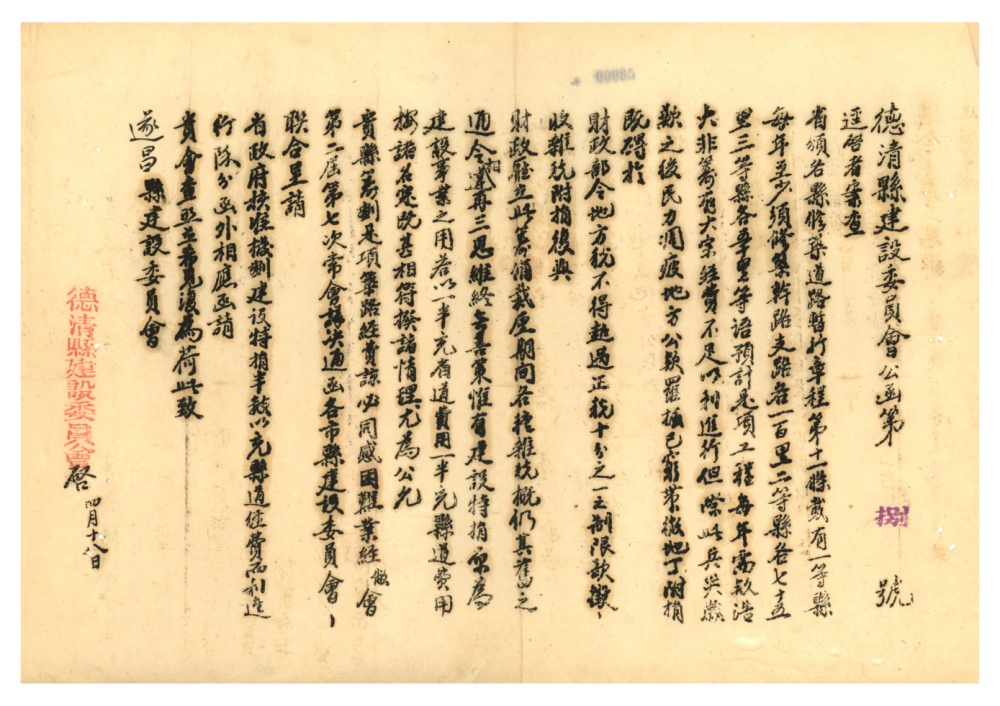 00085
德清縣建設委員會公函第 捌 號
逕啓者案查
省頒各縣修築道路暫行章程第十一條載有一等縣
每年至少須修築幹路支路各一百里二等縣各七十五
里三等縣各五十里等語預計是項工程每年需款浩
大非籌有大宗經費不足以利進行但際此兵災歲
歉之後民力凋疲地方公款羅掘已窮帶徵地丁附捐
既碍於
財政部令地方稅不得超過正稅十分之一之制限欲徵
收雜稅附捐復與
財政廳立此籌備裁厘期間各種雜稅概仍其舊之
通令相違再三思維終無善策惟有建設特捐原為
建設事業之用若以一半充省道費用一半充縣道費用
揆諸名實既甚相符揆諸情理尤為公允
貴縣籌劃是項築路經費諒必同感困難業經敝會
第二屆第七次常會議決通函各市縣建設委員會
聯合呈請
省政府核准撥劃建設特捐半數以充縣道經費而利進
行除分函外相應函請
貴會查照並希見復為荷此致
遂昌縣建設委員會
德清縣建設委員會 啓 四月十八日